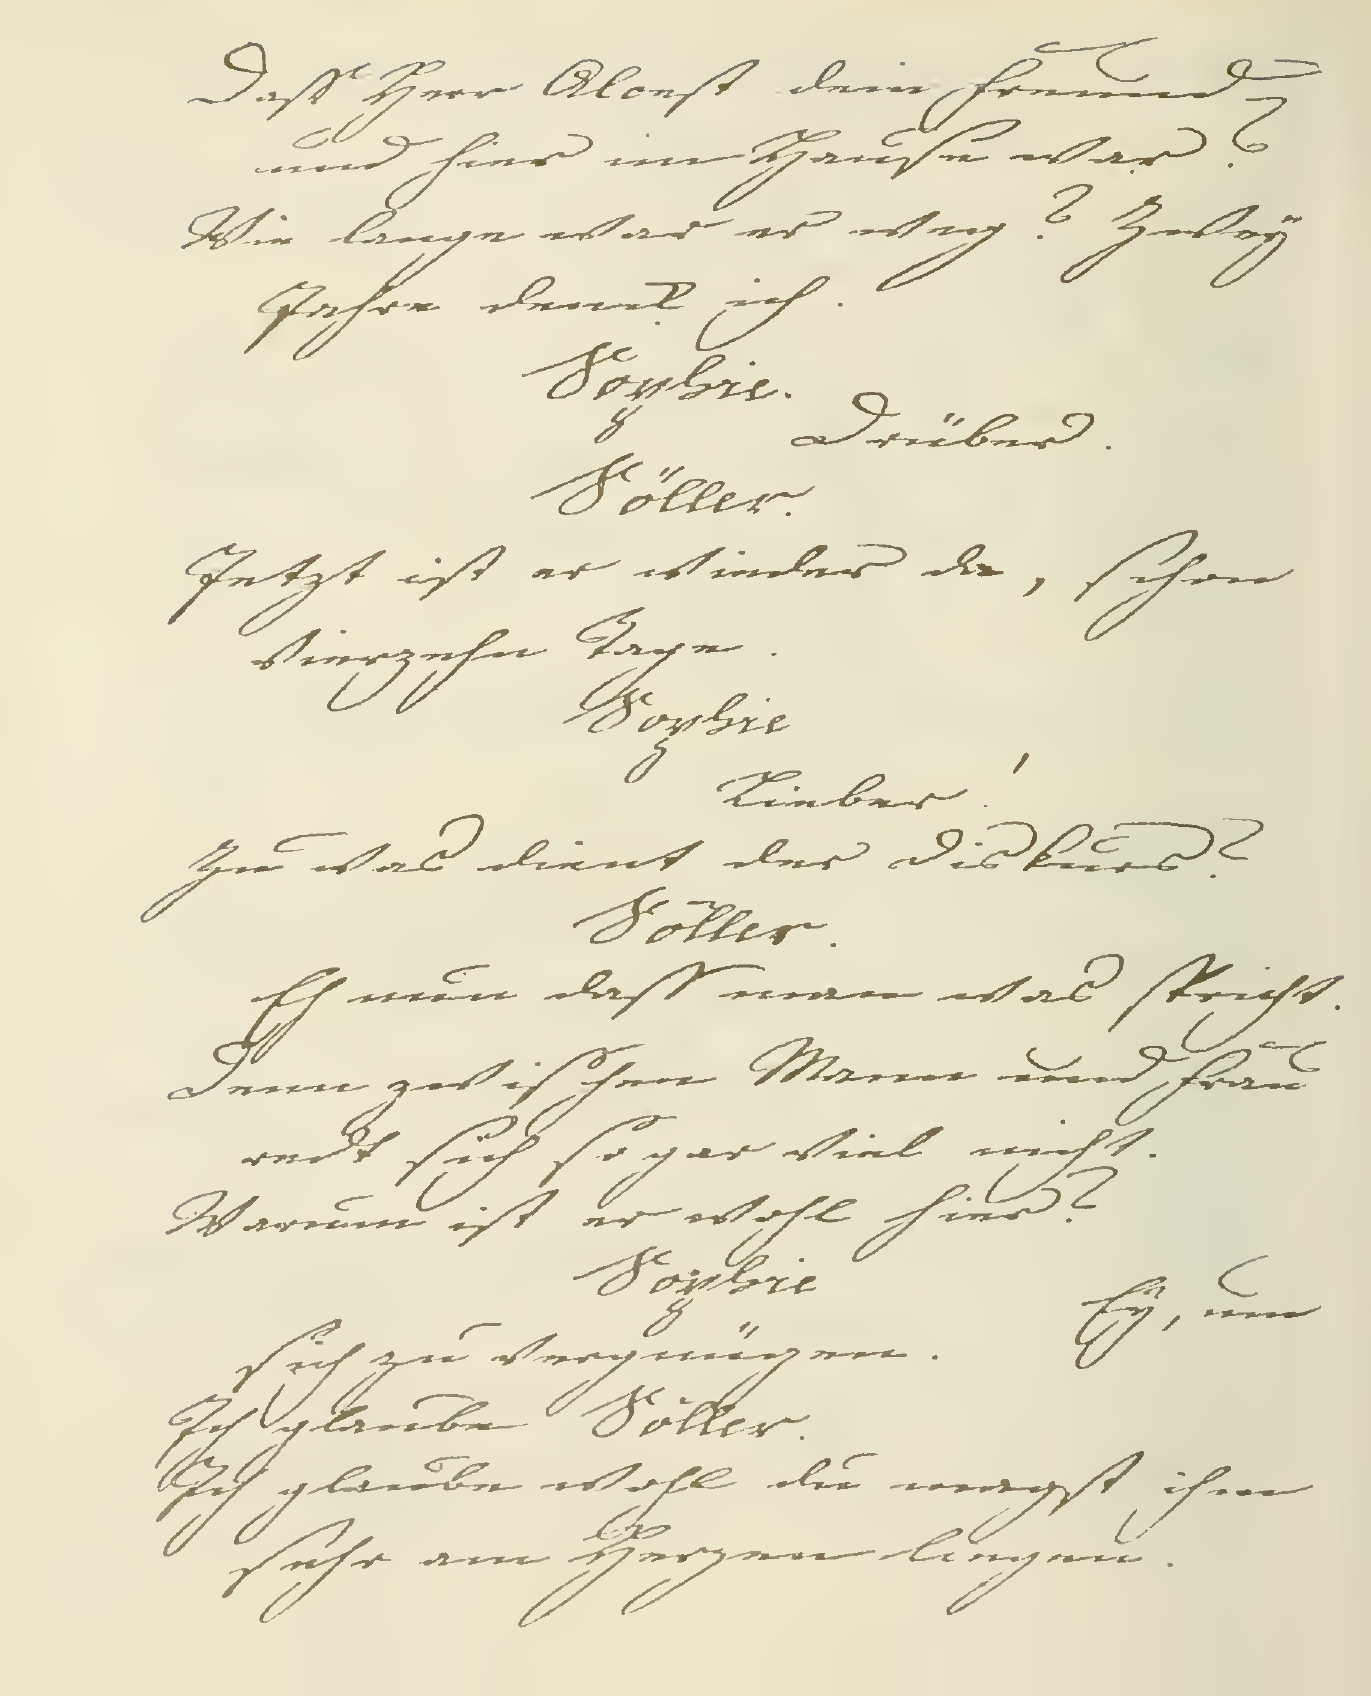 Dass Herr Alcest dein Freund
und hier im Hause war?
Wie lange war er weg? Zwey
Jahre denck ich.
Sophie.
Drüber.
Söller.
Jetzt ist er wieder da, schon
vierzehn Tage.
Sophie
Lieber!
Zu was dient der Diskurs?
Söller.
Eh nun dass man was spricht.
Denn zwischen Mann und Frau
redt sich so gar viel nicht.
Warum ist er wohl hier?
Sophie
Ey, um
sich zu vergnügen.
Ich glaube Söller.
Ich glaube wohl du magst ihm
sehr am Herzen liegen.